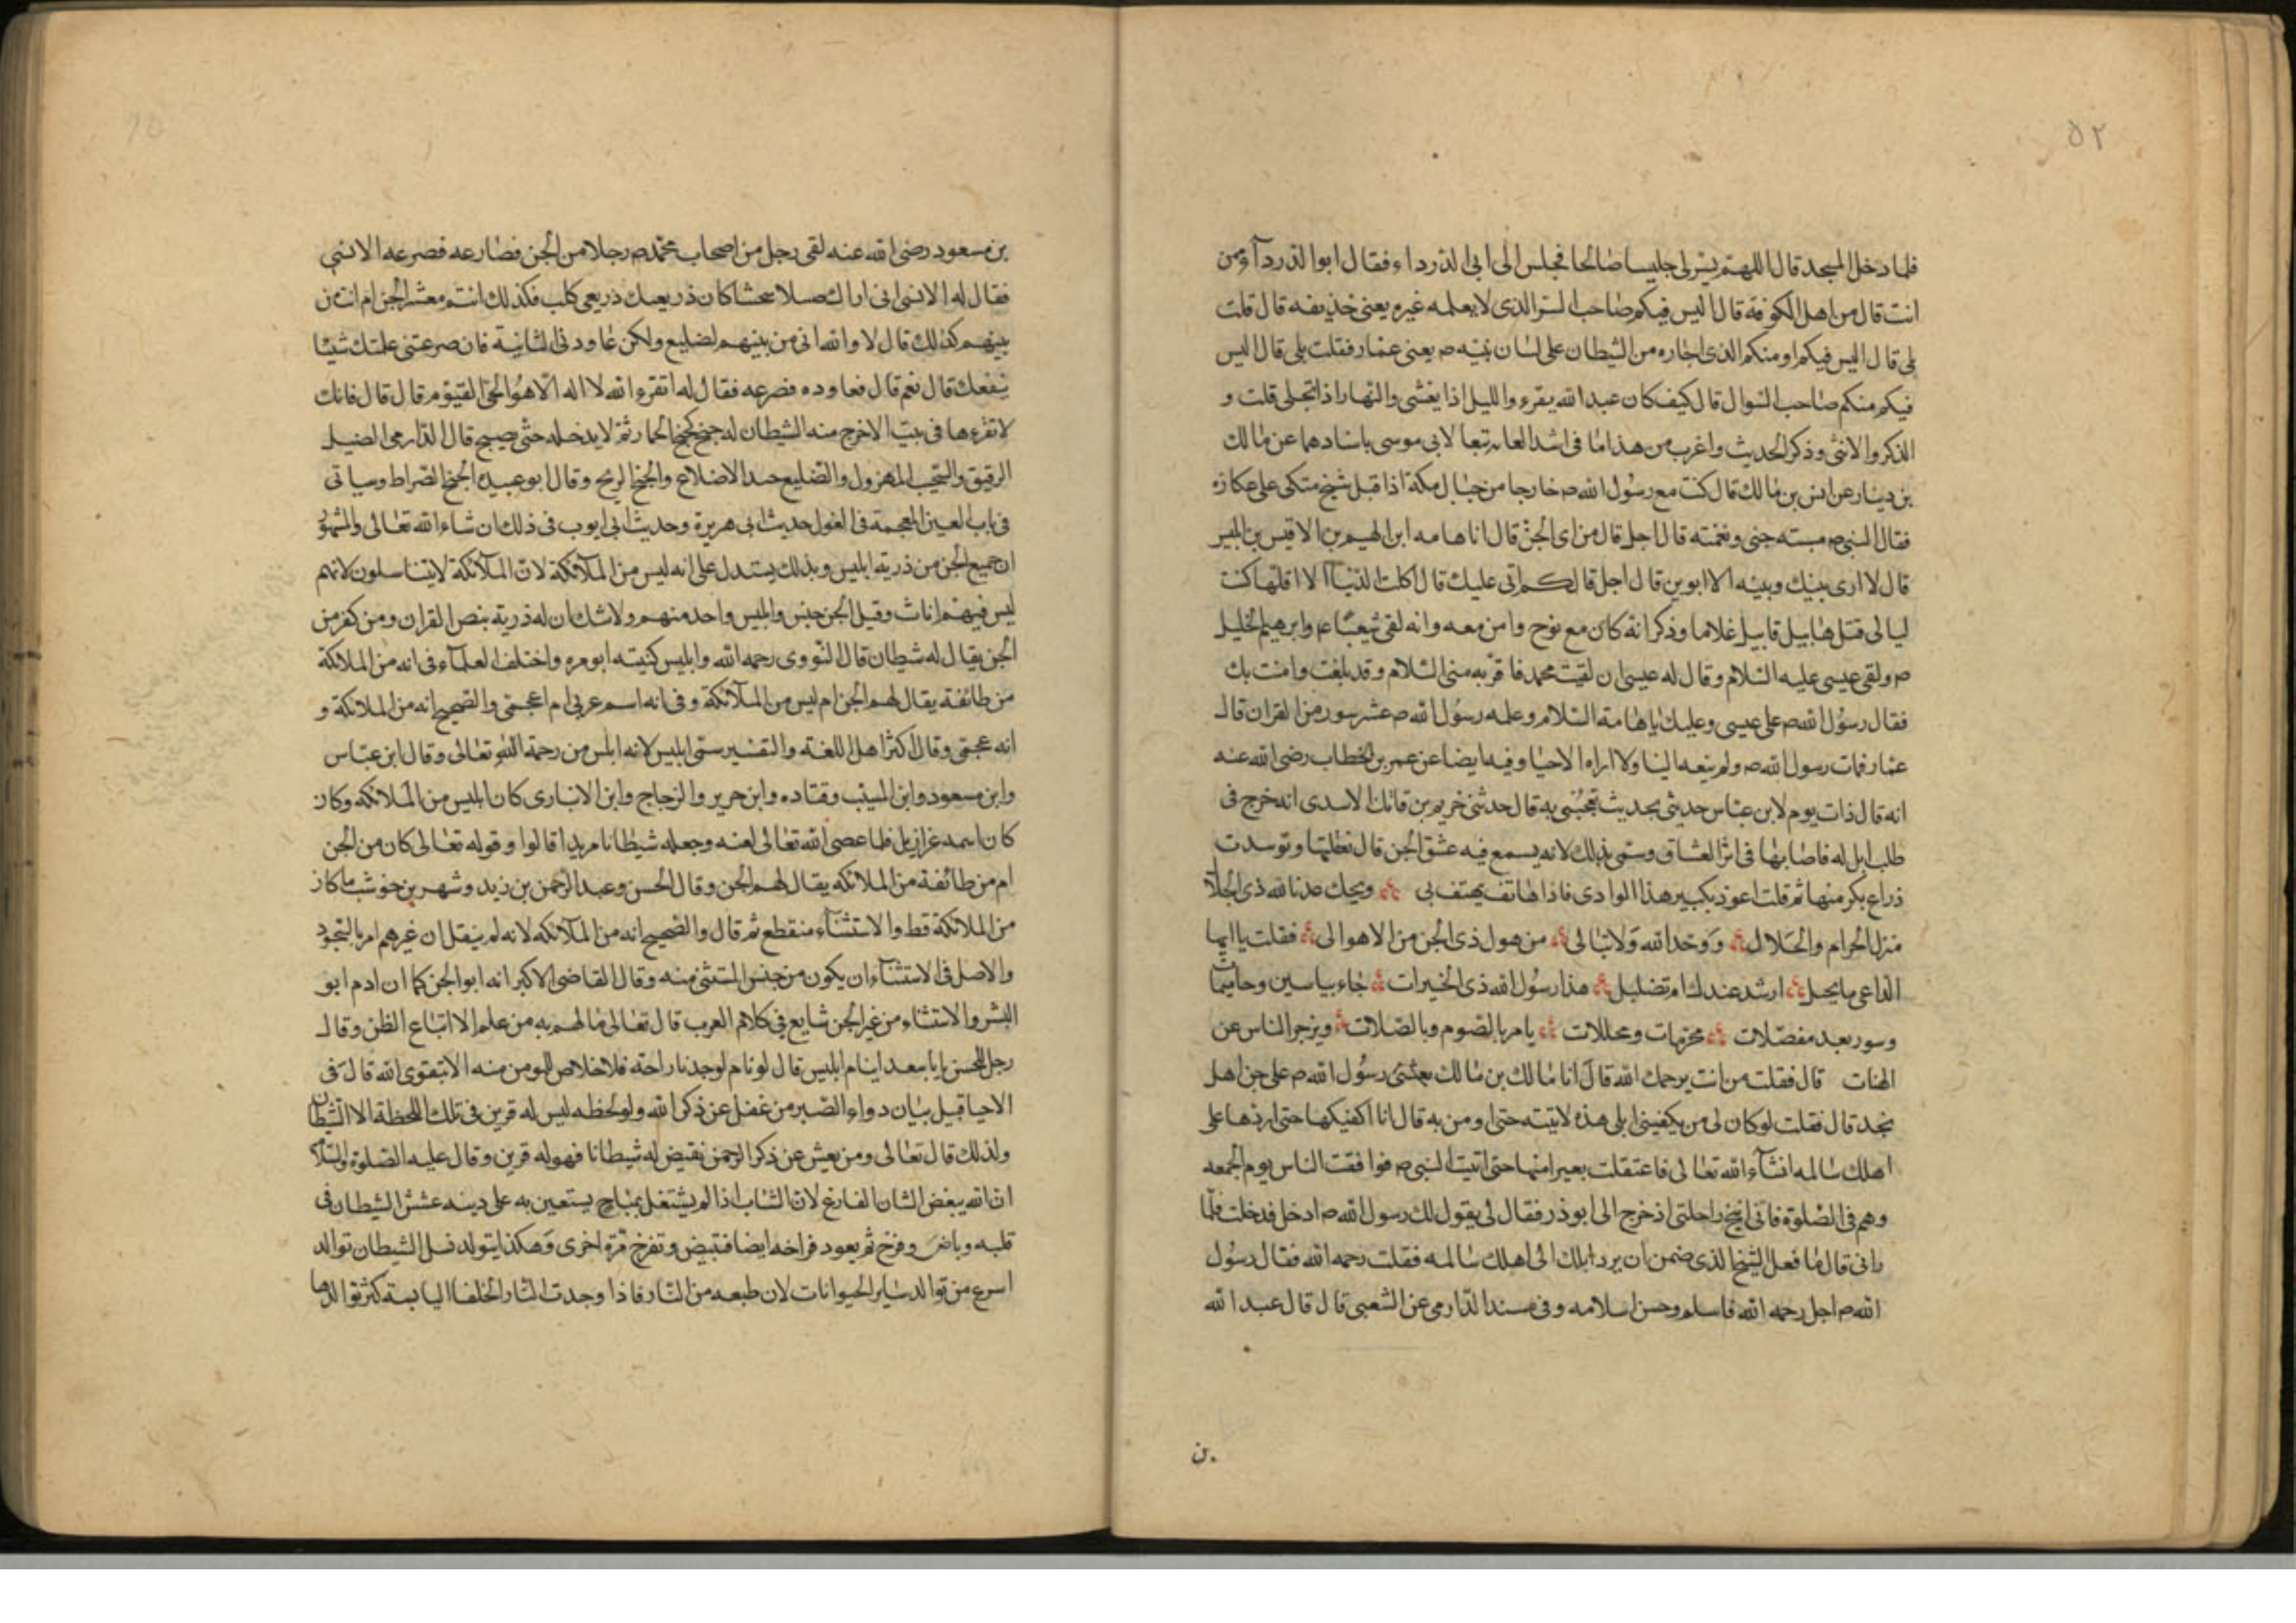 ٥٢
فلما دخل المسجد قال اللهم يسر لى جليسا صالحا فجلس الى ابى الدرداء فقال ابوا الدرداء ومن
انت قال من اهل الكوفة قال اليس فيكم صاحب السر الذى لا يعلمه غيره يعنى حذيفه قال قلت
بلى قال اليس فيكم او منكم الذى اجاره من الشيطان على لسان نبيه ص يعنى عمار فقلت بلى قال اليس
فيكم منكم صاحب السوال قال كيف كان عبد الله يقرء والليل اذا يغشى والنهار اذا تجلى قلت و
الذكر والانثى وذكر الحديث واغرب من هذا ما فى اسد الغابه تبعا لابى موسى باسنادهما عن مالك
بن دينار عن انس بن مالك قال كنت مع رسول الله ص خارجا من جبال مكة اذا قبل شيخ متكى على عكازه
فقال النبى ص مسته جنى ونغمته قال اجل قال من اى الجن قال انا هامه ابن الهيم بن الاقيس بن ابليس
قال لا ارى بينك وبينه الا ابوين قال اجل قال كم اتى عليك قال اكلت الدنيا الا اقلها كنت
ليالى قتل هابيل قابيل غلاما وذكر انه كان مع نوح وامن معه وانه لقى شعيبا ع وابرهيم الخليل
ص ولقى عيسى عليه السلام وقال له عيسى ان لقيت محمد فاقرئه منى السلام وقد بلغت وامنت بك
فقال رسول الله ص على عيسى وعليك يا هامة السلام وعلمه رسول الله ص عشر سور من القران قال
عمار فمات رسول الله ص ولم ينعه الينا ولا اراه الا حيا وفيه ايضا عن عمر بن الخطاب رضى الله عنه
انه قال ذات يوم لابن عباس حدثنى بحديث تعجبنى به قال حدثنى خريم بن فاتك الاسدى انه خرج فى
طلب ابل له فاصابها فى ابرق العشاق وسمى بذلك لانه يسمع فيه عشق الجن قال فعقلتها وتوسدت
ذراع بكر منها ثم قلت اعوذ بكبير هذا الوادى فاذا هاتف يهتف بى ويحك عذ بالله ذى الجلال
منزل الحرام والحلال ووحد الله ولا تبالى من هول ذى الجن من الاهوالى فقلت يا ايها
الداعى ما يحل ارشد عندك ام تضليل هذا رسول الله ذى الخيرات جاء بياسين وحاميمات
وسور بعد مفصلات محرمات ومحللات يامر بالصوم وبالصلات ويزجر الناس عن
الهنات قال فقلت من انت يرحمك الله قال انا مالك بن مالك بعثنى رسول الله ص على جن اهل
نجد قال فقلت لو كان لى من يكفينى ابلى هذه لاتيته حتى اومن به قال انا اكفيكها حتى اردها على
اهلك سالمه انشاء الله تعالى فاعتقلت بعيرا منها حتى اتيت النبى ص فوافقت الناس يوم الجمعه
وهم فى الصلوة فانى انيخ راحلتى اذ خرج الى ابوذر فقال لى يقول لك رسول الله ص ادخل فدخلت فلما
رانى قال ما فعل الشيخ الذى ضمن ان يرد ابلك الى اهلك سالمه فقلت رحمه الله فقال رسول
الله ص اجل رحمه الله فاسلم وحسن اسلامه وفى مسند الدارمى عن الشعبى قال قال عبد الله
بن
بن مسعود رضى الله عنه لقى رجل من اصحاب محمد ص رجلا من الجن فصارعه فصرعه الانسى
فقال له الانسى انى اراك ضئيلا سخشا كان ذريعيك ذريعى كلب فكذلك انتم معشر الجن ام انت من
بينهم كذلك قال لا والله انى من بينهم لضليع ولكن عاودنى الثانية فان صرعتنى علمتك شيئا
ينفعك قال نعم قال فعاوده فصرعه فقال له اتقرء الله لا اله الا هو الحى القيوم قال قال فانك
لا تقرءها فى بيت الا خرج منه الشيطان له خبج كخبج الحمار ثم لا يدخله حتى يصبح قال الدارمى الضئيل
الرقيق والسخيت المهزول والضليع جيد الاضلاع والخبج الريح وقال ابو عبيده الخبج الضراط وسياتى
فى باب الغين المعجمة فى الغول حديث ابى هريرة وحديث ابى ايوب فى ذلك ان شاء الله تعالى والمشهور
ان جميع الجن من ذرية ابليس وبذلك يستدل على انه ليس من الملائكة لان الملائكة لا يتناسلون لانهم
ليس فيهم اناث وقيل الجن جنس وابليس واحد منهم ولا شك ان له ذرية بنص القران ومن كفر من
الجن يقال له شيطان قال النووى رحمه الله وابليس كنيته ابو مره واختلف العلماء فى انه من الملائكة
من طائفة يقال لهم الجن ام ليس من الملائكة وفى انه اسم عربى ام اعجمى والصحيح انه من الملائكة و
انه عجمى وقال اكثر اهل اللغة والتفسير سمى ابليس لانه ابلس من رحمة الله تعالى وقال ابن عباس
وابن مسعود وابن المسيب وقتاده وابن جرير والزجاج وابن الانبارى كان ابليس من الملائكه وكان
كان اسمه عزازيل فلما عصى الله تعالى لعنه وجعله شيطانا مريدا قالوا وقوله تعالى كان من الجن
ام من طائفة من الملائكه يقال لهم الجن وقال الحسن وعبد الرحمن بن زيد وشهر بن حوشب ما كان
من الملائكة قط والاستثناء منقطع ثم قال والصحيح انه من الملائكه لانه لم ينقل ان غيرهم امر بالسجود
والاصل فى الاستثناء ان يكون من جنس المستثنى منه وقال القاضى الاكبر انه ابو الجن كما ان ادم ابو
البشر والاستثناء من غير الجن شايع فى كلام العرب قال تعالى ما لهم به من علم الا اتباع الظن وقال
رجل للحسن يابا سعد اينام ابليس قال لو نام لوجدنا راحة فلا خلاص للمومن منه الا بتقوى الله قال فى
الاحيا قبيل بيان دواء الصبر من غفل عن ذكر الله ولو لحظه ليس له قرين فى تلك اللحظة الا الشيطان
ولذلك قال تعالى ومن يعش عن ذكر الرحمن نقيض له شيطانا فهو له قرين وقال عليه الصلوة والسلام
ان الله يبغض الشاب الفارغ لان الشاب اذا لم يشتغل بمباح يستعين به على دينه عشش الشيطان فى
قلبه وباض وفرخ ثم يعود فراخه ايضا فتبيض وتفرخ مرة اخرى وهكذا يتولد نسل الشيطان توالد
اسرع من توالد ساير الحيوانات لان طبعه من النار فاذا وجدت النار الحلفا اليابسة كثر توالدها